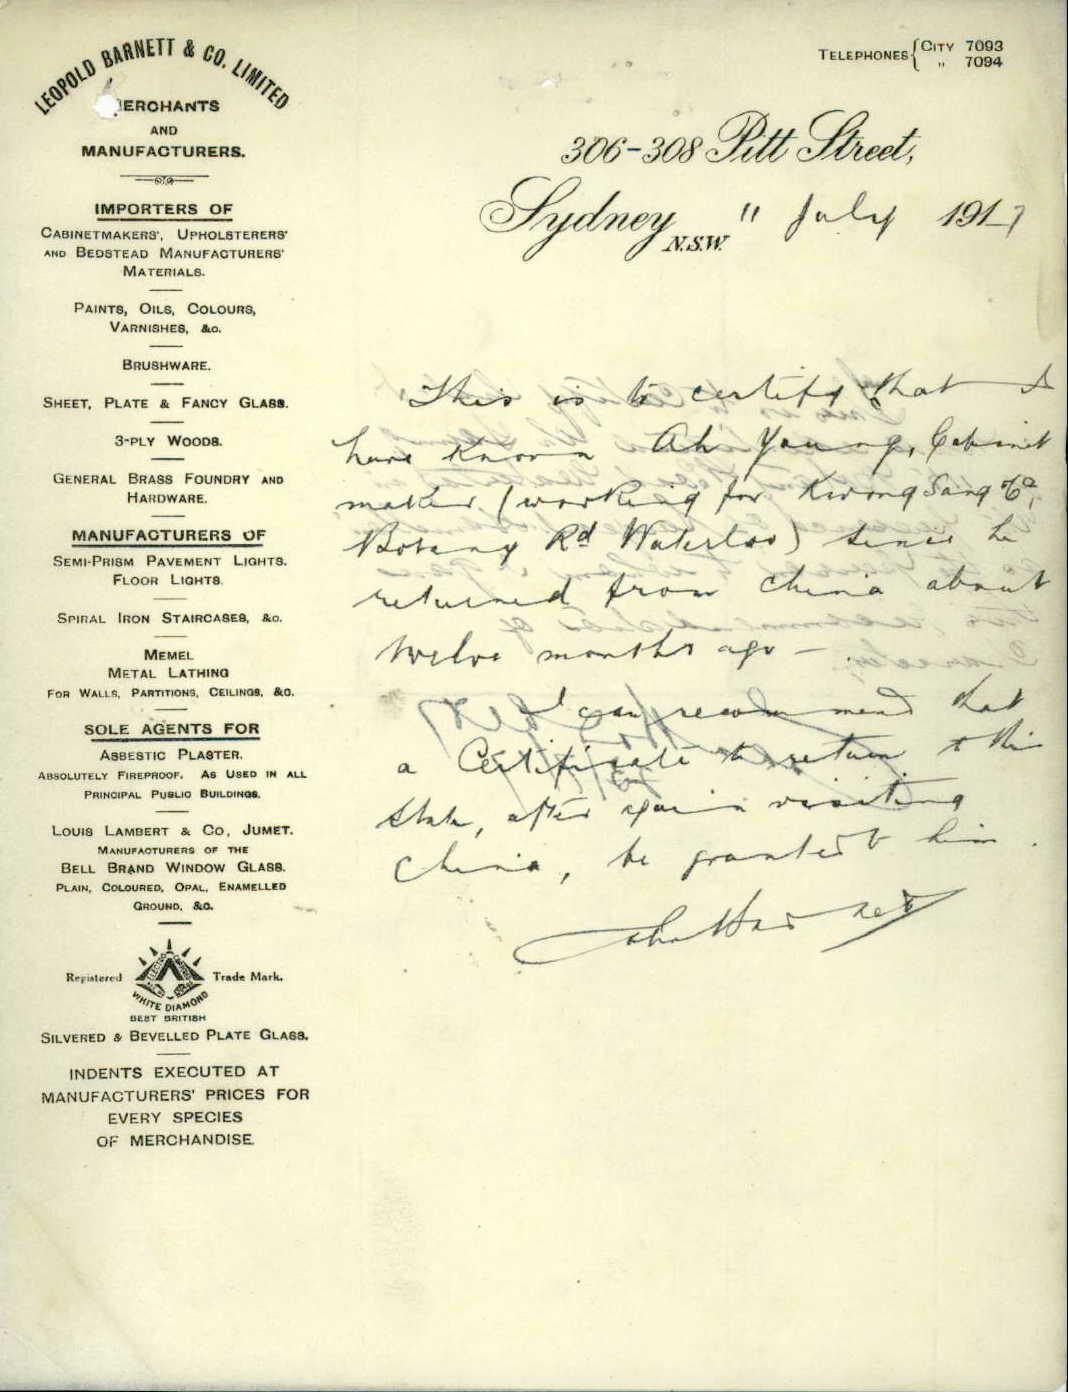 LEOPOLD BARNETT & CO. LIMITED
MERCHANTS
AND
MANUFACTURERS.
IMPORTERS OF
CABINETMAKERS', UPHOLSTERERS'
AND BEDSTEAD MANUFACTURERS'
MATERIALS.
PAINTS, OILS, COLOURS,
VARNISHES, &c.
BRUSHWARE.
SHEET, PLATE & FANCY GLASS.
3-PLY WOODS.
GENERAL BRASS FOUNDRY AND
HARDWARE.
MANUFACTURERS OF
SEMI-PRISM PAVEMENT LIGHTS.
FLOOR LIGHTS.
SPIRAL IRON STAIRCASES, &c.
MEMEL
METAL LATHING
FOR WALLS, PARTITIONS, CEILINGS, &c.
SOLE AGENTS FOR
ASBESTIC PLASTER.
ABSOLUTELY FIREPROOF. AS USED IN ALL
PRINCIPAL PUBLIC BUILDINGS.
LOUIS LAMBERT & CO, JUMET.
MANUFACTURERS OF THE
BELL BRAND WINDOW GLASS.
PLAIN, COLOURED, OPAL, ENAMELLED
GROUND, &c.
Registered Trade Mark.
WHITE DIAMOND
BEST BRITISH
SILVERED & BEVELLED PLATE GLASS.
INDENTS EXECUTED AT
MANUFACTURERS' PRICES FOR
EVERY SPECIES
OF MERCHANDISE.
TELEPHONES { CITY 7093
" 7094
306-308 Pitt Street,
Sydney 11 July 1917
N.S.W.
This is to certify that I
have known Ah Young, Cabinet
maker (working for Kwong Sang & Co,
Botany Rd Waterloo) since he
returned from China about
twelve months ago -.
I can recommend that
a Certificate to return to this
State, after again visiting
China, be granted to him.
John